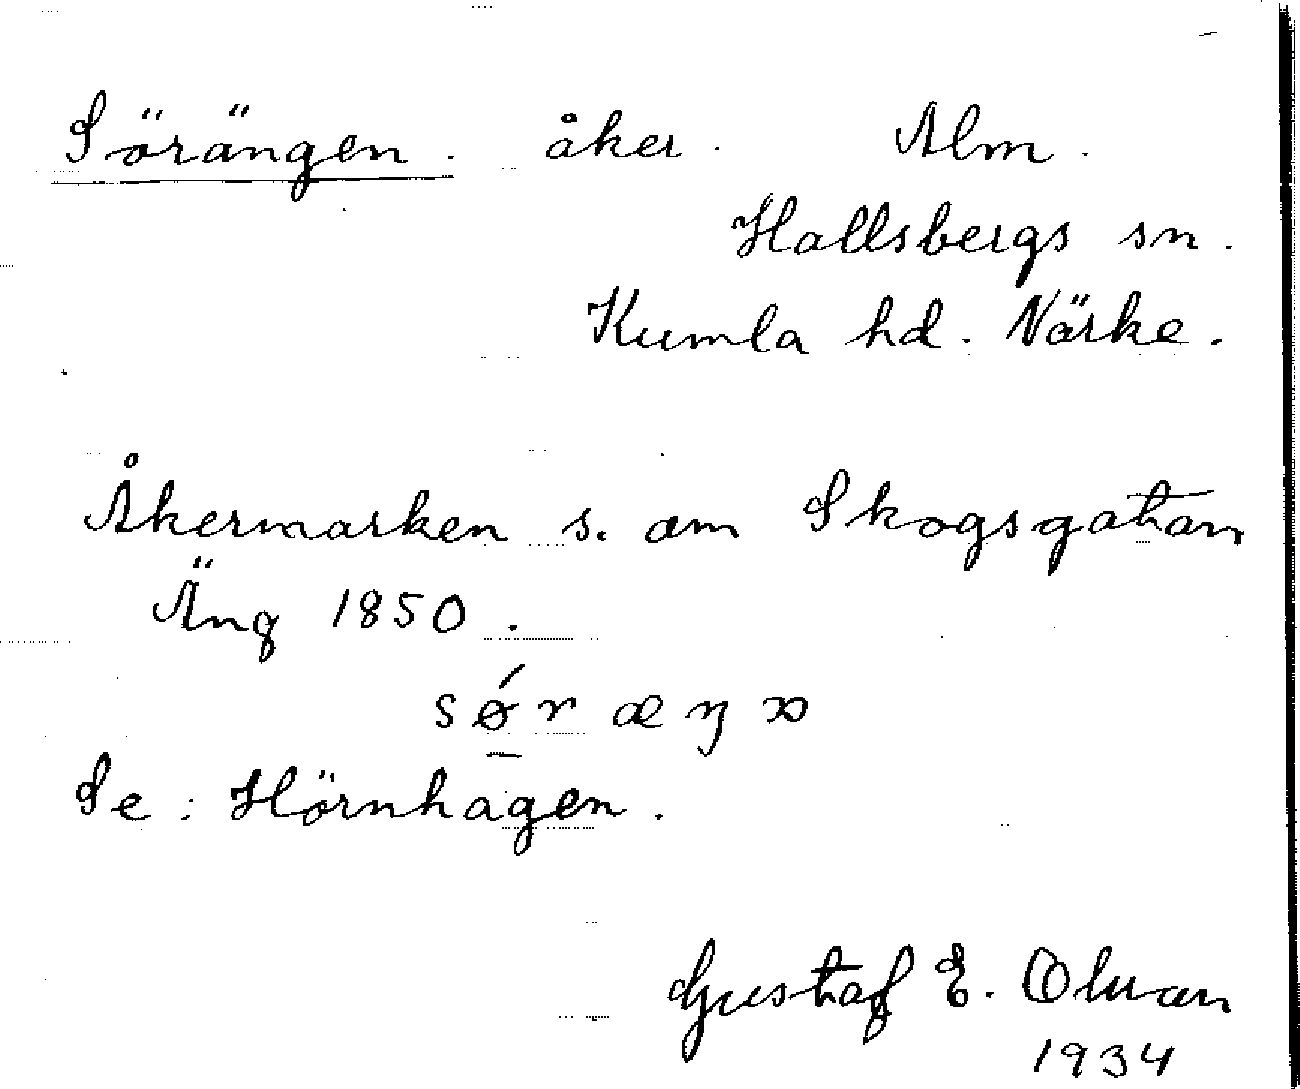 Sörängen. åker. Alm.
Hallsbergs sn.
Kumla hd. Närke.
Åkermarken s. om Skogsgatan
Äng 1850.
sǿr æŋ
Se: Hörnhagen.
Gustaf E.
1934